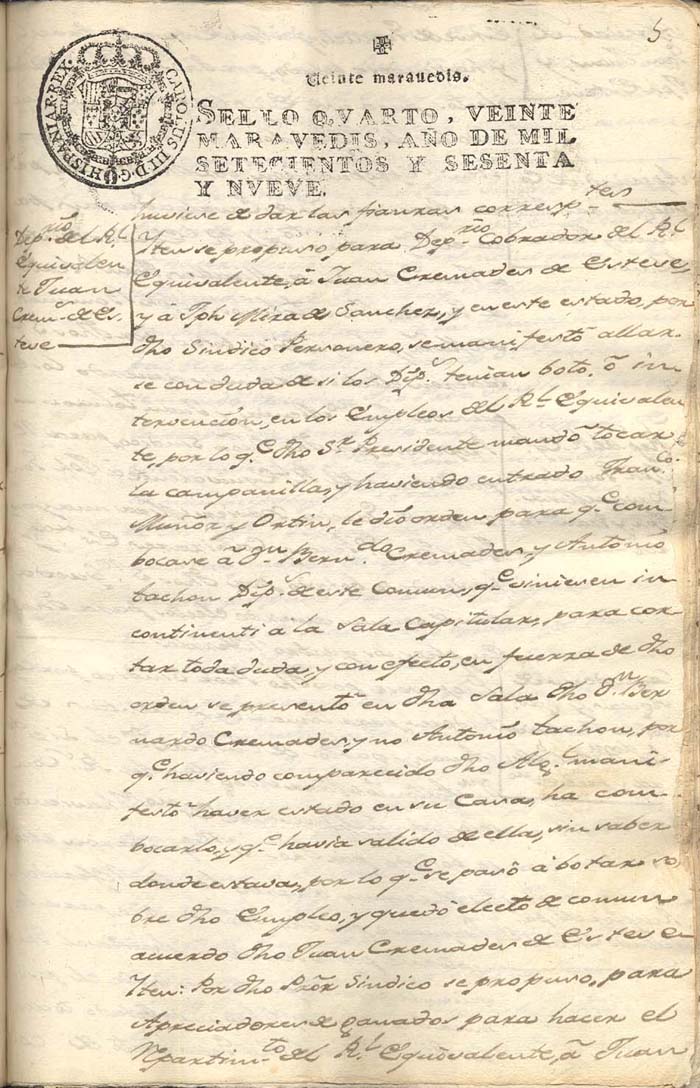 5
Veinte maravedis.
SELLO QVARTO, VEINTE
MARAVEDIS, AÑO DE MIL
SETECIENTOS Y SESENTA
Y NVEVE.
CAROLUS III D G HISPANIAR REX
Depₒʳⁱᵒ del Rˡ
Equivalen
te Juan
Cremˢ de Es
teve
huviese de dar las fianzas corresp.tes
Yten se propuso para Dep.rio Cobrador del Rˡ
Equivalente, â Juan Cremades de Esteve,
y â Jph Mira de Sanchez, y en este estado, por
dho Sindico Personero, se manifestò allar
se con duda de si los Dip.ˢ tenian boto, ô in
tervencion, en los Empleos del Rˡ Equivalen
te, por lo qᵉ dho Sʳ Presidente mandò tocar
la campanilla, y haviendo entrado Fran.ᶜᵒ
Muñòz y Ortin, le diò orden para qᵉ com
bocase â Dⁿ Bern.do Cremades, y Antonio
tachon Dip.ˢ de este Comun, qᵉ viniesen in
continenti a la Sala Capitular, para cor
tar toda duda, y con efecto, en fuerza de dho
orden se presentò en dha Sala dho Dⁿ Ber
nardo Cremades, y no Antonio tachon, por
qᵉ haviendo comparecido dho Alg.ˡ mani
festò haver estado en su Casa, ha com
bocarlo, y qᵉ havia salido de ella, sin saber
donde estava, por lo qᵉ se pasò â botar so
bre dho Empleo, y quedò electo de comun
acuerdo dho Juan Cremades de Esteve
Yten: Por dho Pròr Sindico se propuso, para
Apreciadores de ganados para hacer el
Repartim.to del Rˡ Equivalente, â Juan